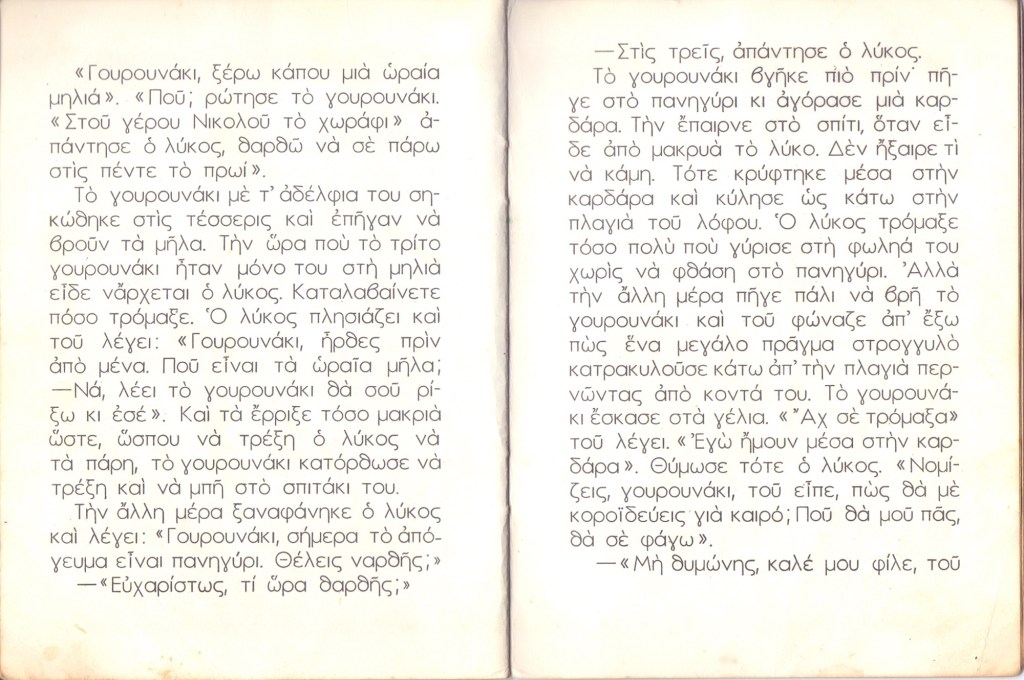 «Γουρουνάκι, ξέρω κάπου μιὰ ὡραία
μηλιά». «Ποῦ; ρώτησε τὸ γουρουνάκι.
«Στοῦ γέρου Νικολοῦ τὸ χωράφι» ἀ-
πάντησε ὁ λύκος, θαρθῶ νὰ σὲ πάρω
στὶς πέντε τὸ πρωί».
Τὸ γουρουνάκι μὲ τ' ἀδέλφια του ση-
κώθηκε στὶς τέσσερις καὶ ἐπῆγαν νὰ
βροῦν τὰ μῆλα. Τὴν ὥρα ποὺ τὸ τρίτο
γουρουνάκι ἦταν μόνο του στὴ μηλιὰ
εἶδε νἄρχεται ὁ λύκος. Καταλαβαίνετε
πόσο τρόμαξε. Ὁ λύκος πλησιάζει καὶ
τοῦ λέγει: «Γουρουνάκι, ἦρθες πρὶν
ἀπὸ μένα. Ποῦ εἶναι τὰ ὡραῖα μῆλα;
—Νά, λέει τὸ γουρουνάκι θὰ σοῦ ρί-
ξω κι ἐσέ». Καὶ τὰ ἔρριξε τόσο μακριὰ
ὥστε, ὥσπου νὰ τρέξη ὁ λύκος νὰ
τὰ πάρη, τὸ γουρουνάκι κατόρθωσε νὰ
τρέξη καὶ νὰ μπῆ στὸ σπιτάκι του.
Τὴν ἄλλη μέρα ξαναφάνηκε ὁ λύκος
καὶ λέγει: «Γουρουνάκι, σήμερα τὸ ἀπό-
γευμα εἶναι πανηγύρι. Θέλεις ναρθῆς;»
—«Εὐχαρίστως, τί ὥρα θαρθῆς;»
—Στὶς τρεῖς, ἀπάντησε ὁ λύκος.
Τὸ γουρουνάκι βγῆκε πιὸ πρίν πῆ-
γε στὸ πανηγύρι κι ἀγόρασε μιὰ καρ-
δάρα. Τὴν ἔπαιρνε στὸ σπίτι, ὅταν εἶ-
δε ἀπὸ μακρυὰ τὸ λύκο. Δὲν ἤξαιρε τὶ
νὰ κάμη. Τότε κρύφτηκε μέσα στὴν
καρδάρα καὶ κύλησε ὡς κάτω στὴν
πλαγιὰ τοῦ λόφου. Ὁ λύκος τρόμαξε
τόσο πολὺ ποὺ γύρισε στὴ φωληά του
χωρὶς νὰ φθάση στὸ πανηγύρι. Ἀλλὰ
τὴν ἄλλη μέρα πῆγε πάλι νὰ βρῆ τὸ
γουρουνάκι καὶ τοῦ φώναζε ἀπ' ἔξω
πὼς ἕνα μεγάλο πρᾶγμα στρογγυλὸ
κατρακυλοῦσε κάτω ἀπ' τὴν πλαγιὰ περ-
νῶντας ἀπὸ κοντά του. Τὸ γουρουνά-
κι ἔσκασε στὰ γέλια. «Ἄχ σὲ τρόμαξα»
τοῦ λέγει. «Ἐγὼ ἤμουν μέσα στὴν καρ-
δάρα». Θύμωσε τότε ὁ λύκος. «Νομί-
ζεις, γουρουνάκι, τοῦ εἶπε, πὼς θὰ μὲ
κοροϊδεύεις γιὰ καιρό; Ποῦ θὰ μοῦ πᾶς,
θὰ σὲ φάγω».
—«Μὴ θυμώνης, καλέ μου φίλε, τοῦ